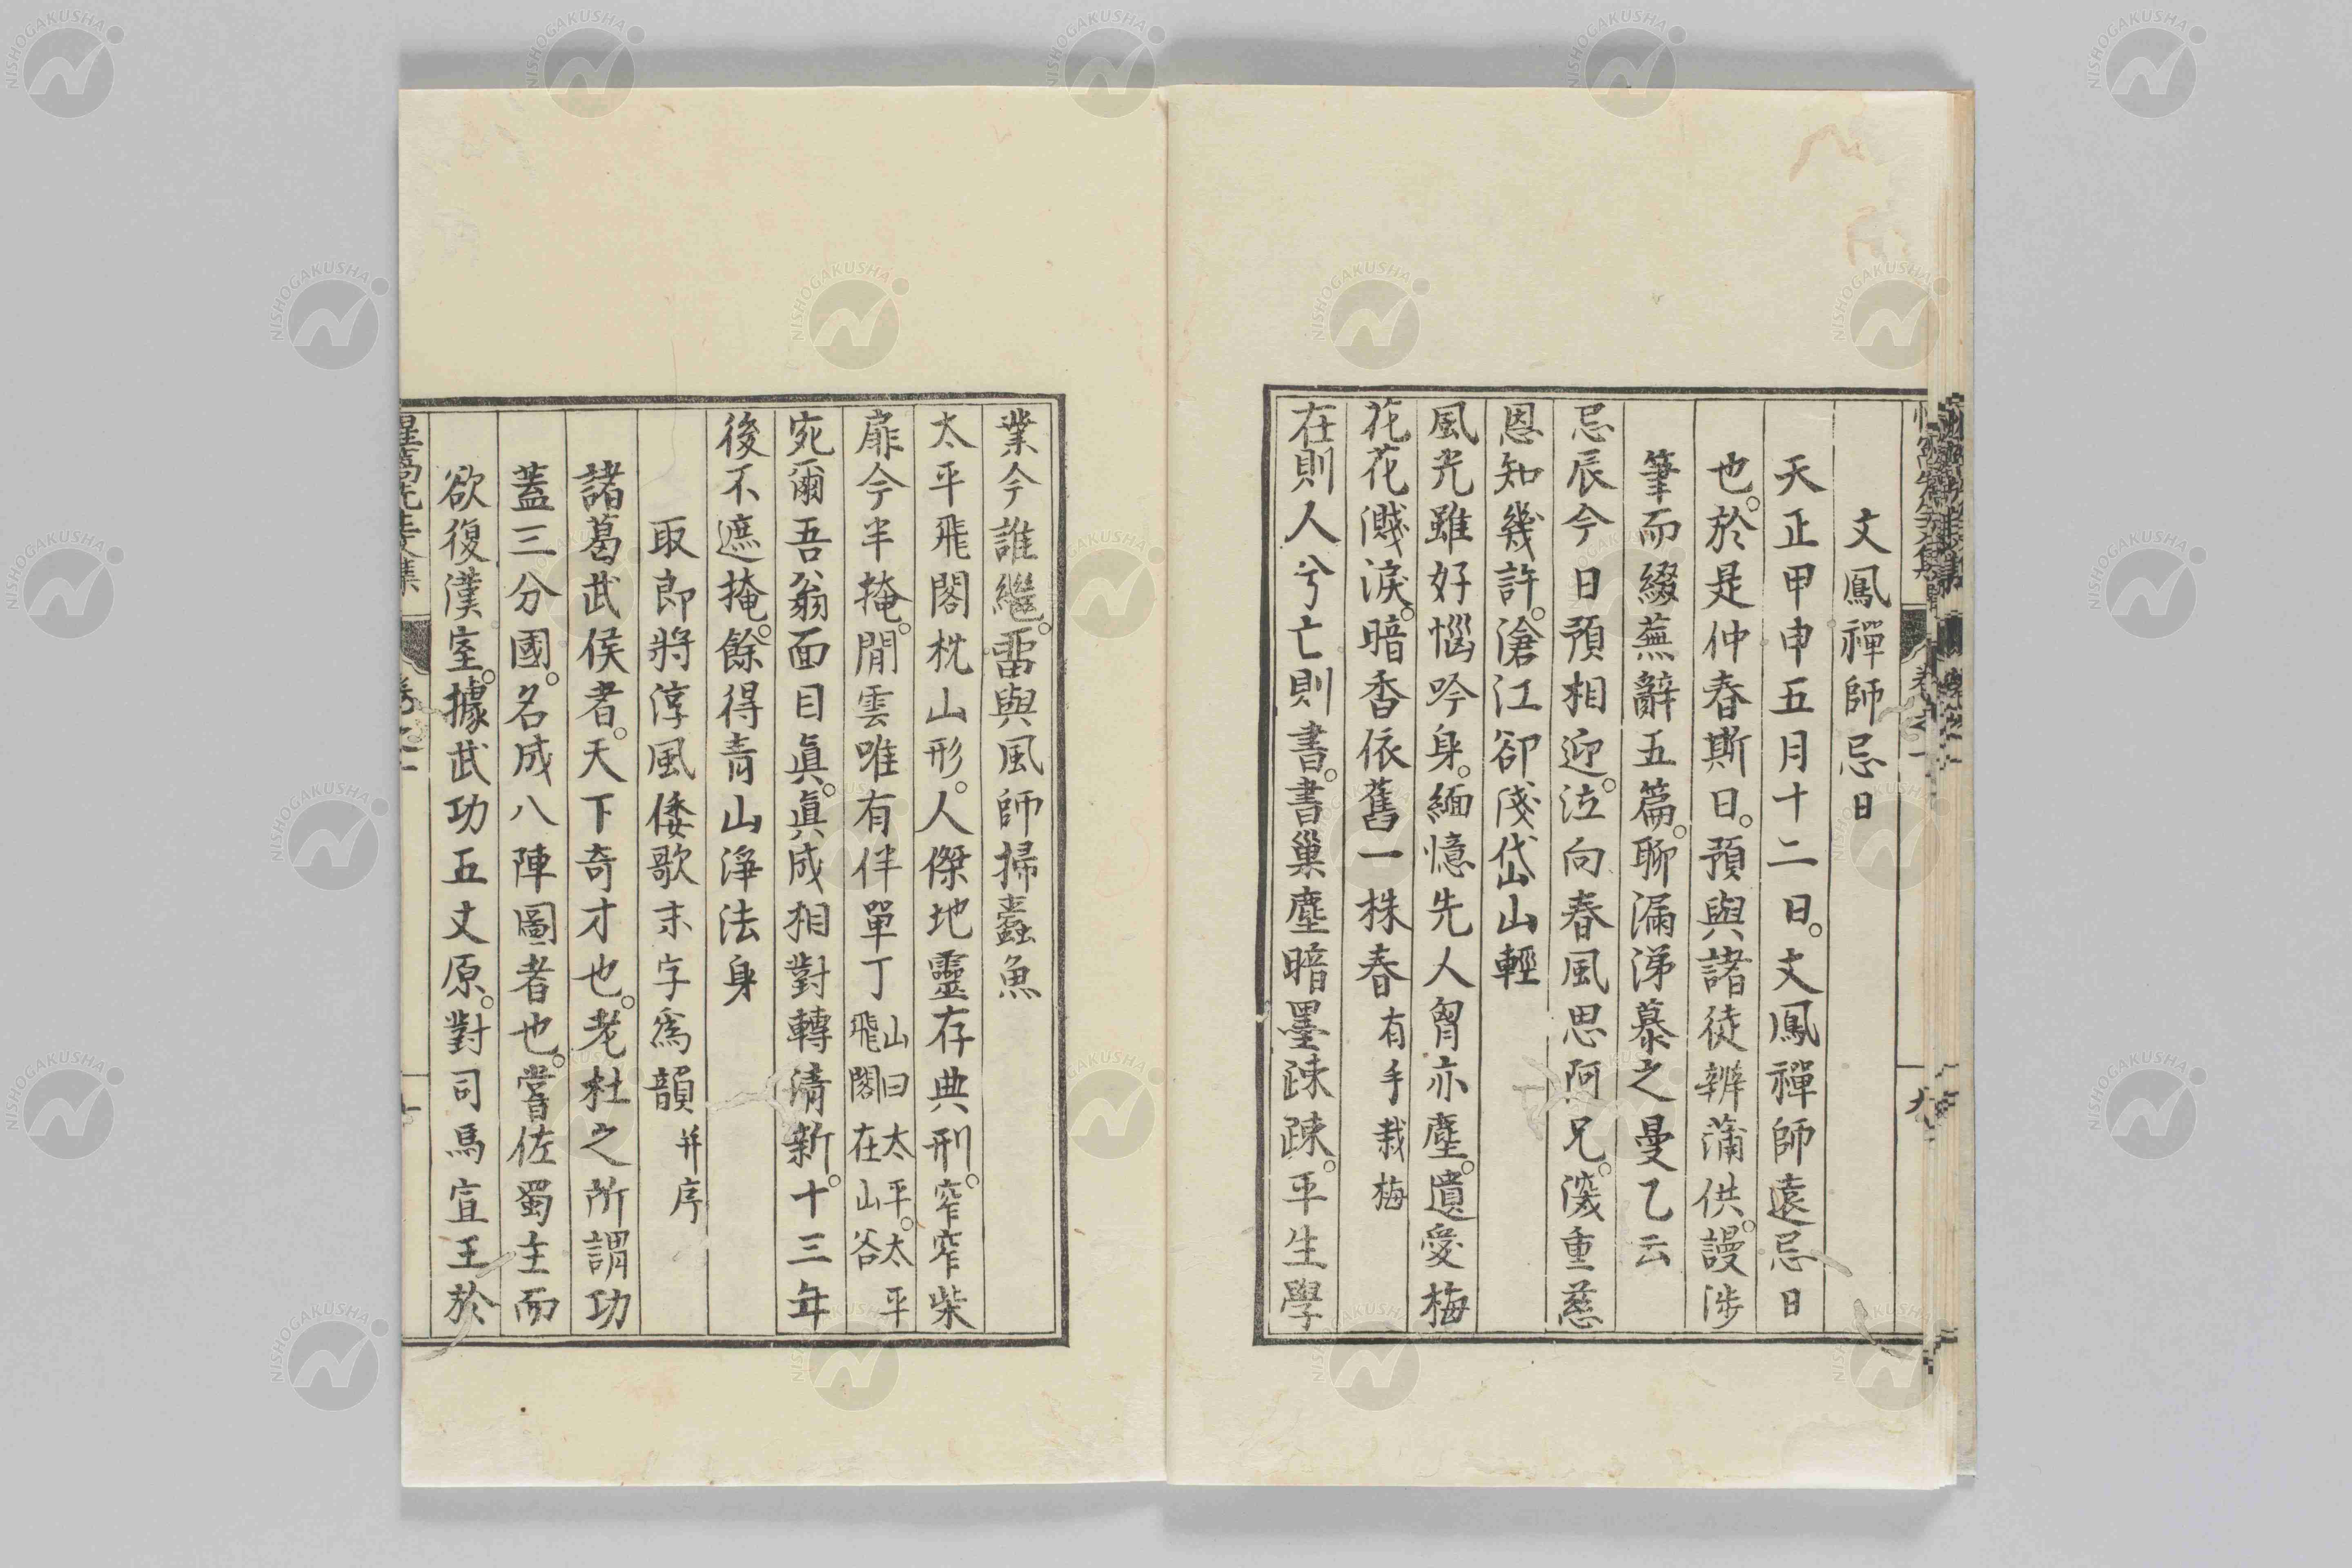 文鳳禪師忌日
天正甲申五月十二日。文鳳禪師遠忌日
也。於是仲春斯日。預與諸徒辨蒲供。謾涉
筆而綴蕪辭五篇。聊漏涕慕之曼乙云
忌辰今日預相迎。泣向春風思阿兄。濺重慈
恩知幾許。滄江卻淺岱山輕
風光雖好惱吟身。緬憶先人胷亦塵。遺愛梅
花花濺淚。暗香依舊一株春 有手栽梅
在則人兮亡則書。書巢塵暗墨疎疎。平生學
業今誰繼。雷與風師掃蠹魚
太平飛閣枕山形。人傑地靈存典刑。窄窄柴
扉今半掩。閒雲唯有伴單丁 山曰太平。太平飛閣在山谷
宛爾吾翁面目眞。眞成相對轉清新。十三年
後不遮掩。餘得青山淨法身
取郎將淳風倭歌末字爲韻 并序
諸葛武侯者。天下奇才也。老杜之所謂功
蓋三分國。名成八陣圖者也。嘗佐蜀主而
欲復漢室。據武功五丈原。對司馬宣王於